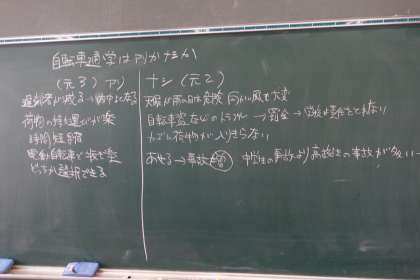 自転車通学はアリかナシか
(元3) アリ
遅刻者が減る→集中して
荷物の持ち運びが楽
時間短縮
電動自転車で坂も楽
どっちか選択できる
ナシ (元2)
大雨や雨の日は危険 向かい風も大変
自転車盗などのトラブル → 罰金 → 学校は責任をとれない
カゴに荷物が入りきらない
あせる→事故 増 中学生の事故より高校生の事故が多い